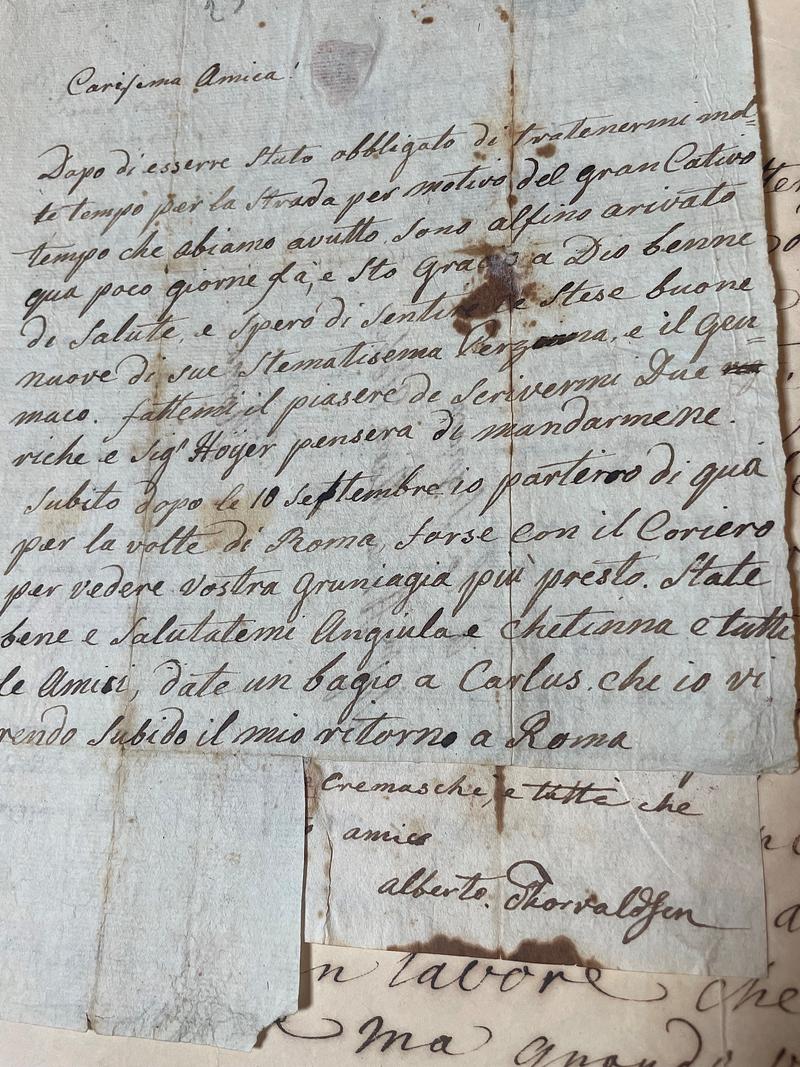 Carissima Amica!
Dapo di esserre Stato obbligato di tratenermi mol=
te tempo per la Strada per motivo del gran Cativo
tempo che abiamo avutto. Sono alfino arivato
qua poco giorne fà, e Sto a Dio benne
di Salute, e Spero di Sentire le Stese buone
nuove di sue Stematisema e il Gen=
maco. fattemi il piasere de Scrivermi Due
riche e Sigr Hoÿer pensera di mandarmene.
Subito dopo le 10 Septembre io parterro di quà
per la volte di Roma, forse con il Coriero
per vedere vostra Gruniagia più presto. State
bene e Salutatemi Angiula e chetinna e tutti
le Amici, date un bagio a Carlus. che io vi
rendo Subido il mio ritorno a Roma
Cremasche, e tutta che
amics
alberto. Thorvaldsen
n lavore che
ma quando